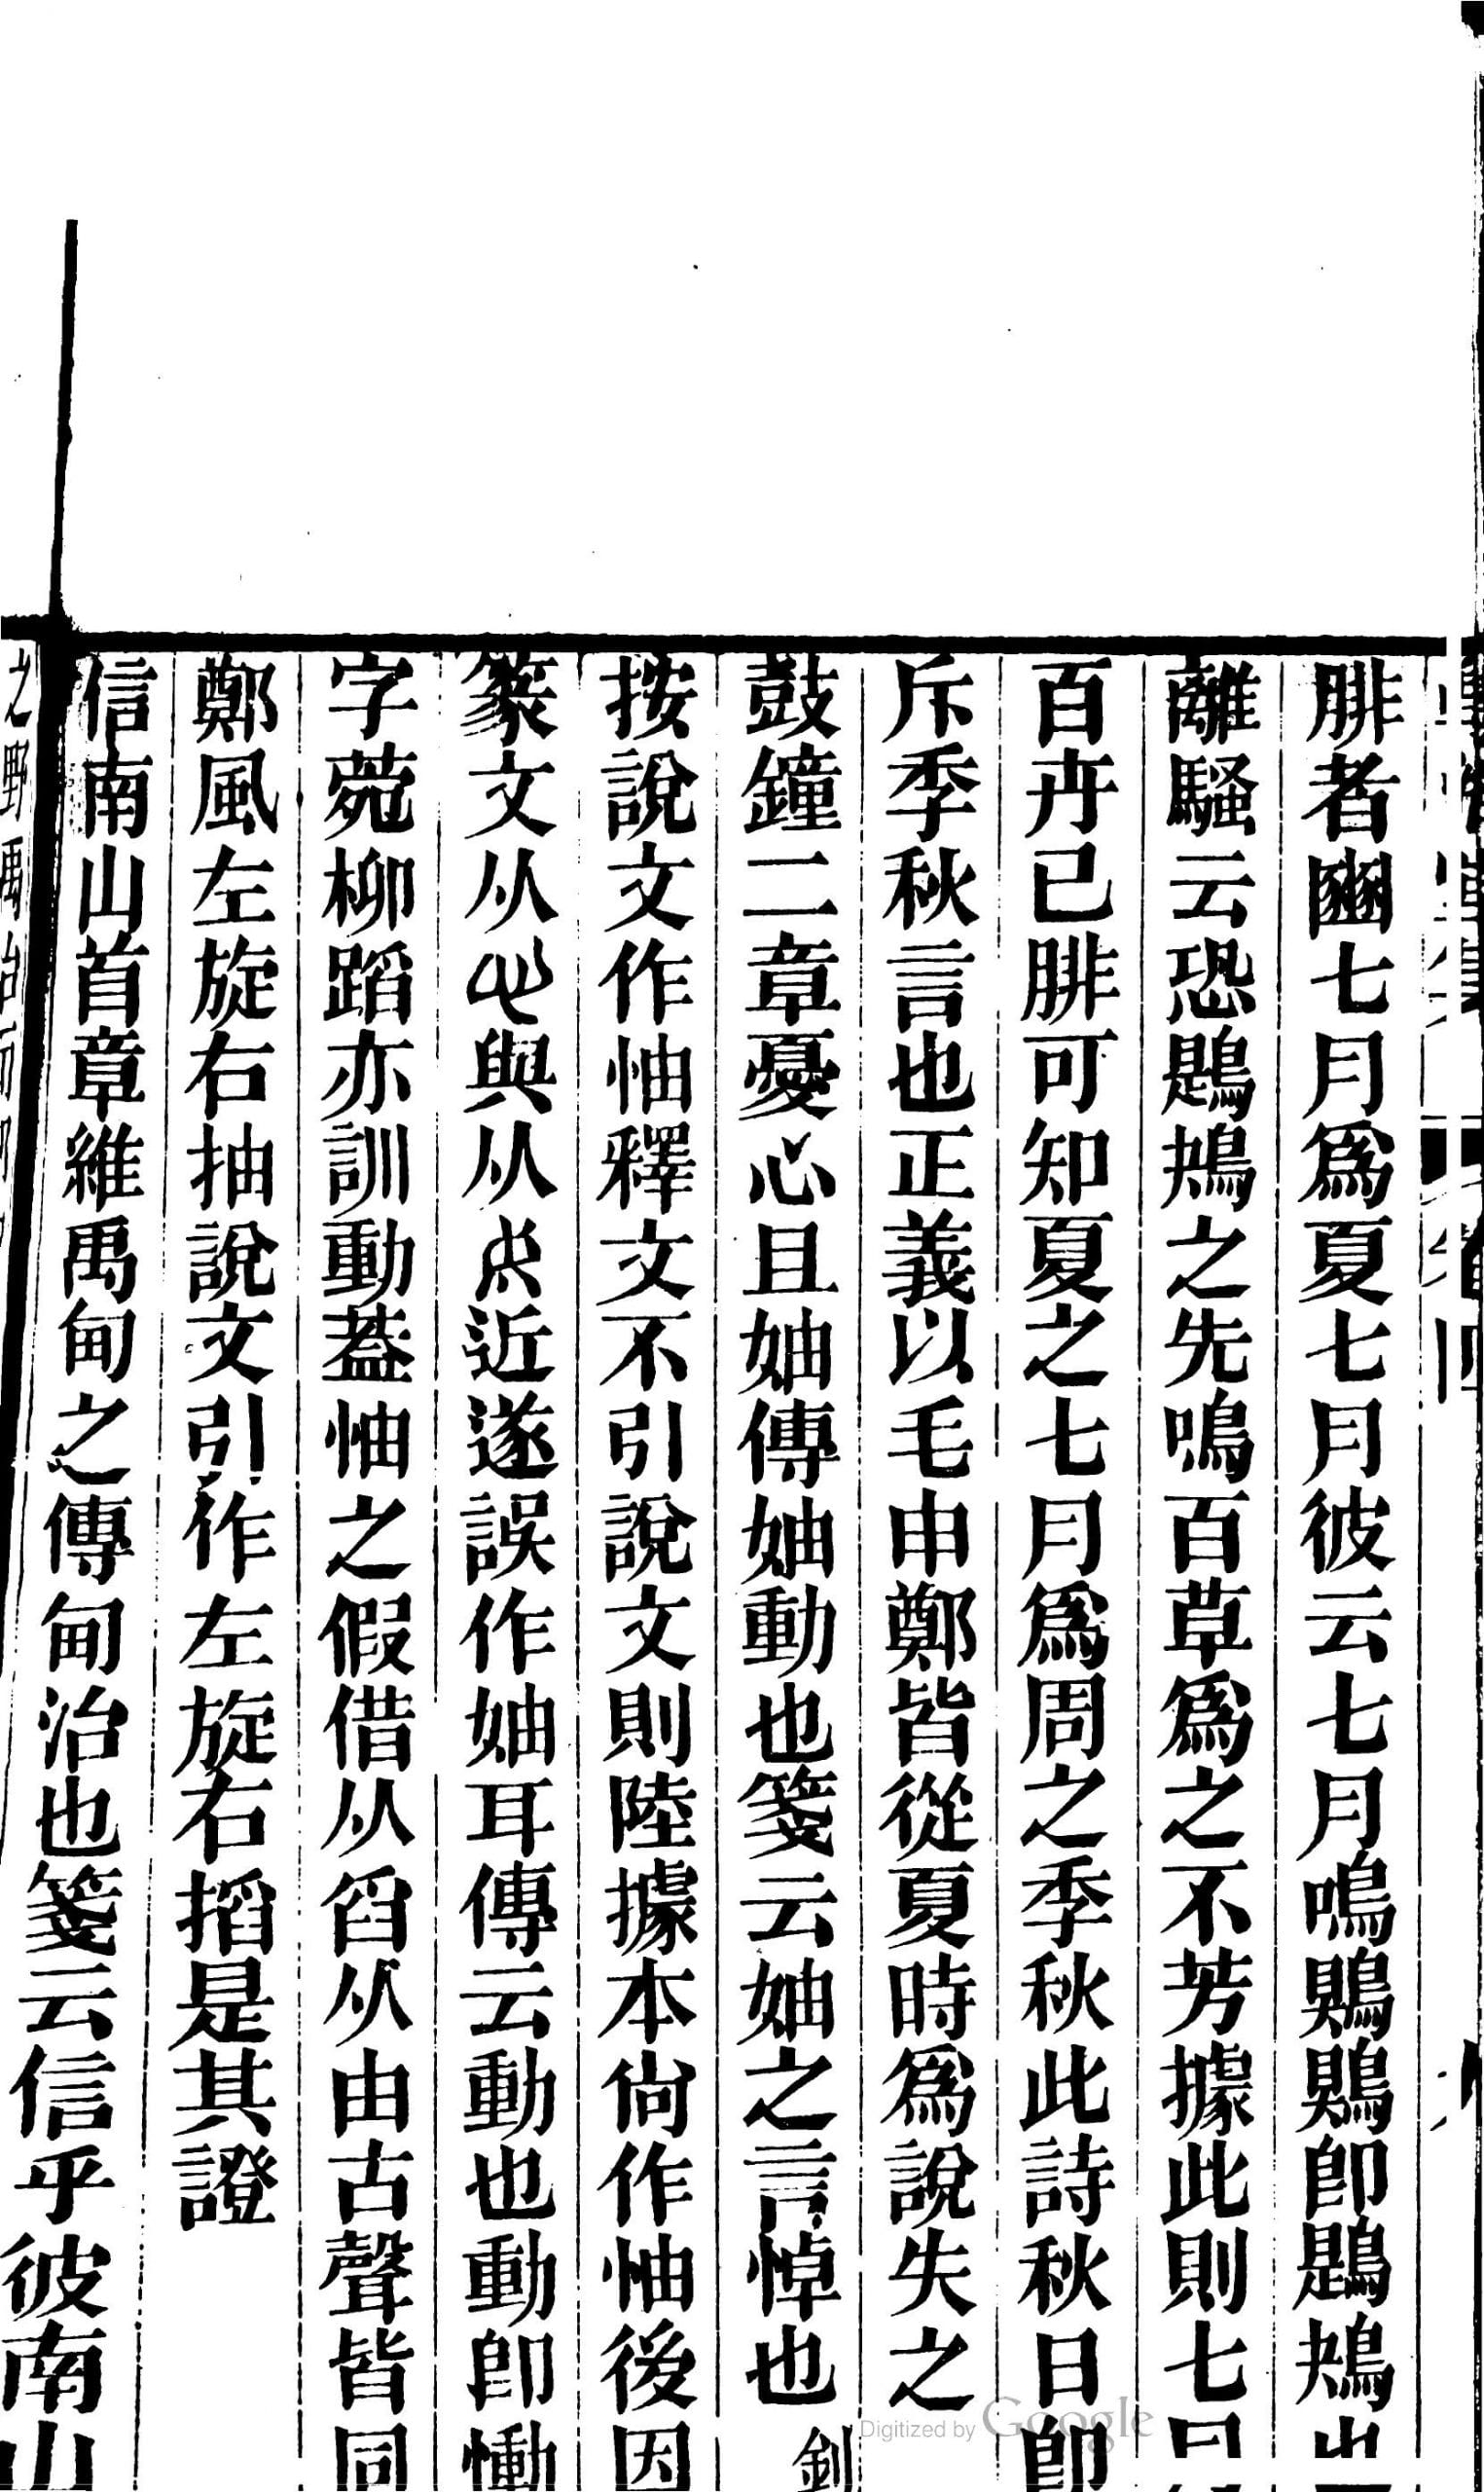 腓者豳七月爲夏七月彼云七月鳴鵙鵙卽鶗鴂也
離騷云恐鶗鴂之先鳴百草爲之不芳據此則七月
百卉已腓可知夏之七月爲周之季秋此詩秋日卽
斥季秋言也正義以毛申鄭皆從夏時爲說失之
鼓鐘二章憂心且妯傳妯動也箋云妯之言悼也釗
按說文作怞釋文不引說文則陸據本尙作怞後因
篆文从心與从𡿺近遂誤作妯耳傳云動也動卽慟
字菀柳蹈亦訓動葢怞之假借从舀从由古聲皆同
鄭風左旋右抽說文引作左旋右搯是其證
信南山首章維禹甸之傳甸治也箋云信乎彼南山
之野禹治
卷四
Digitized by Google